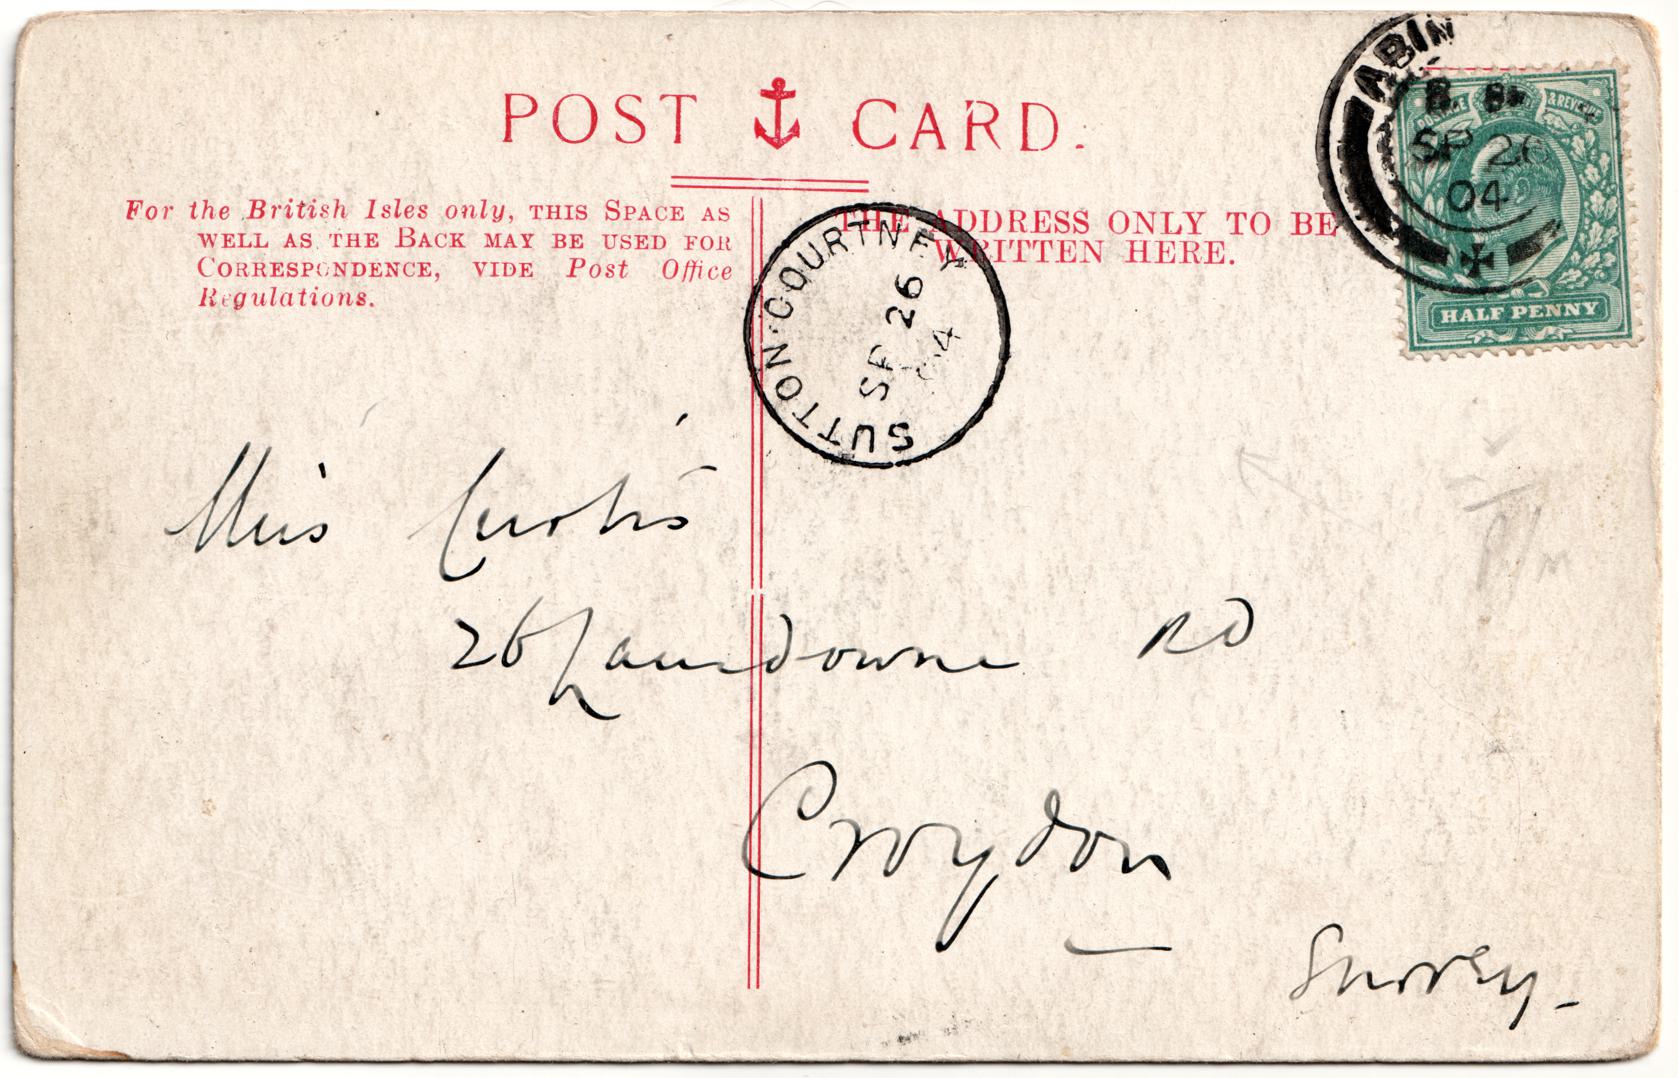 POST CARD.
For the British Isles only, THIS SPACE AS
WELL AS THE BACK MAY BE USED FOR
CORRESPONDENCE, VIDE Post Office
Regulations.
THE ADDRESS ONLY TO BE
WRITTEN HERE.
SUTTON·COURTNEY
SP 26
04
ABIN
SP 26
04
POSTAGE & REVENUE
HALF PENNY
Miss Curtis
26 Lansdowne RD
Croydon
Surrey-